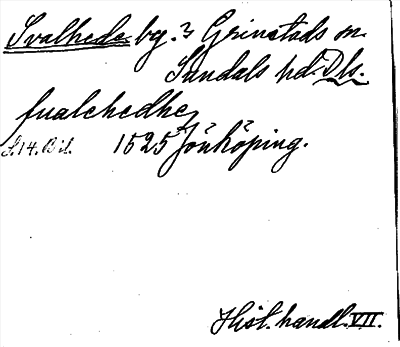 Svalhede bg.? Grinstads sn.
Sundals hd. Dls.
fualehedhe
S. 14. Bil. 1525 Jönköping.
Hist. handl. VII.